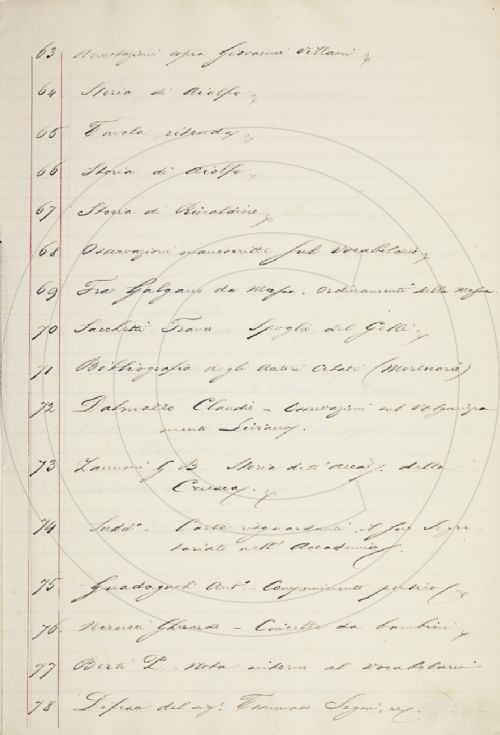 63 Annotazioni sopra Giovanni Villani
64 Storia di Aiolfo
65 Tavola ritonda
66 Storia di Aiolfo
67 Storia di Rinaldino
68 Osservazioni manoscritte sul Vocabolario
69 Fra Galgano da Massa. Ordinamenti della Messa
70 Sacchetti Franco - Spoglio del Gelli
71 Bibliografia degli Autori Citati (Moreniana)
72 Dalmazzo Claudio - Osservazioni sul Volgarizza
mento Liviano
73 Zannoni G. B. Storia dell'Accad. della
Crusca
74 Sudd.° - Carte risguardanti il suo Segre
tariato nell'Accademia
75 Guadagnoli Ant.° Componimento poetico
76 Nerucci Gherardo - Cincelle da bambini
77 Berti P. - Nota intorno al Vocabolario
78 Difesa del sig.r Tommaso Segni